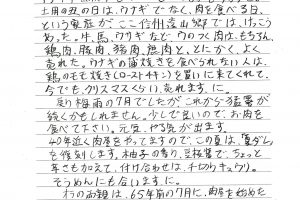 土用の丑の日は、ウナギでなく、肉を食べる日、
という家庭が、ここ信州遠山郷では、けっこう
あった。牛、馬、ウサギなど、ウのつく肉は、もちろん、
鶏肉、豚肉、猪肉、鹿肉と、とにかく、よく
売れた。ウナギの蒲焼きを食べられない人は、
鶏のモモ焼き(ローストチキン)を買いに来てくれて、
今でも、クリスマスくらい、売れます、に。
戻り梅雨の7月でしたが、これから猛暑が
続くかもしれません。少しで良いので、お肉を
食べて下さい。元気、やる気が出ます。
40年近く肉屋をやってますので、この夏は、「夏ダレ」
を復刻します。柚子の香り、豆板醤で、ちょっと
辛さも加えて、付け合せは、千切りキュウリ。
そうめんにも合います、に。
の両親は、65年前の7月に、肉屋を始めた